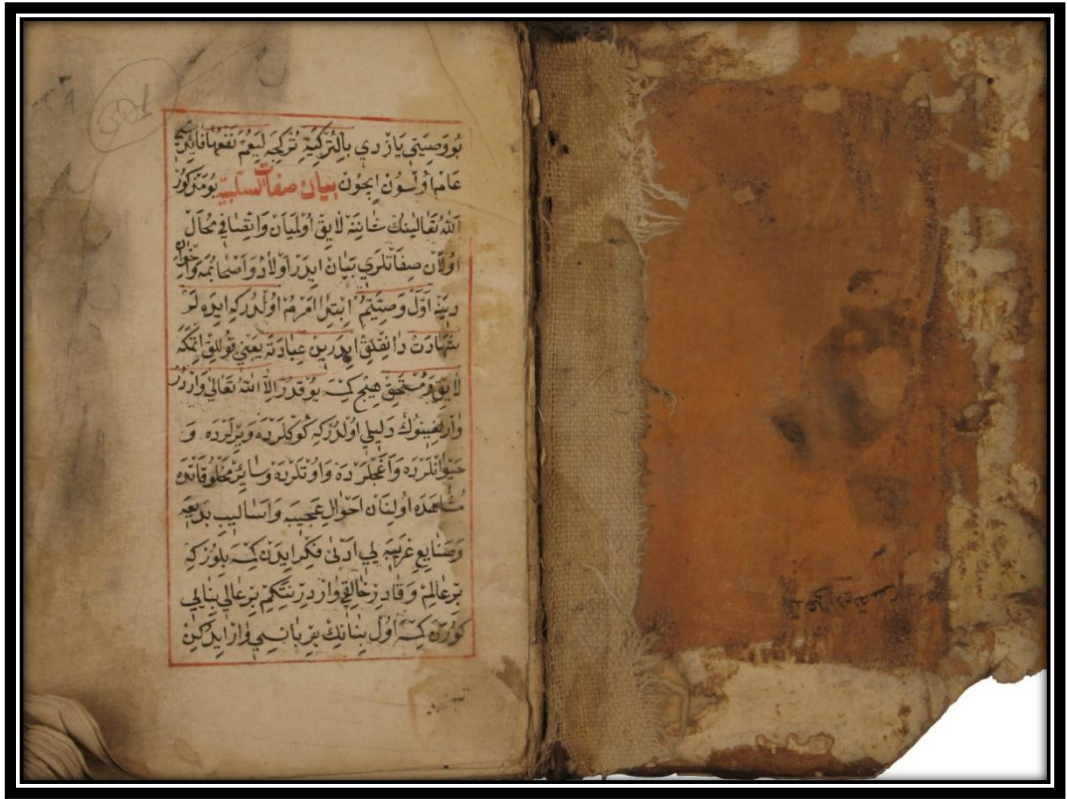 بُو وَصِيَّتِي يَازْدِي بِالتُّرْكِيَّةِ تُرْكْجَه لِيَعُمَّ نَفْعُهَا فَائِدَسِي
عَامْ اُولْسُونْ اِيچُونْ بيان صفات السلبية بُو مَذْكُورْ
اَللّٰهُ تَعَالَينِكْ شَانِنَه لَايِقْ اُولْمَيَانْ وَاتِّصَافِي مُحَالْ
اُولَانْ صِفَاتْلَرِي بَيَانْ ايدَرْ اَوْلَادْ وَاَصْحَابُمَه وَاِخْوَانِ
دِينَه اَوَّلْ وَصِيَّتُمْ اِبْتِدَا اَمْرُمْ اُولْدُرْكِه ايدَه لَرْ
شَهَادَتْ دَانِقْلِقْ ايدَرِينْ عِبَادَتَه يَعْنِي قُولْلِقْ اِتْمَكَه
لَايِقْ وَمُسْتَحِقْ هِيچْ كِمْسَه يُوقْدُرْ اِلَّا اللّٰهُ تَعَالَى وَارْدُرْ
وَارْلِغِينُوكْ دَلِيلِي اُولْدُرْكِه كُوكْلَرْدَه وَيِرْلَرْدَه وَ
حَيْوَانْلَرْدَه وَاَغَجْلَرْدَه وَاُوتْلَرْدَه وَسَائِرْ مَخْلُوقَاتْدَه
مُشَاهَدَه اُولِنَانْ اَحْوَالِ عَجِيبَه وَاَسَالِيبِ بَدِيعَه
وَصَنَايِعِ غَرِيبَه يِي اَدْنَى فِكْرْ ايدَنْ كِمْسَه بِلُورْكِه
بِرْ عَالِمْ وَقَادِرْ خَالِقِي وَارْدِرْ نِتَكِمْ بِرْ عَالِي بِنَايِي
كُورَنْ كِمْسَه اُولْ بِنَانِكْ بِرْ بَانِيسِي وَارْ ايدُكِنْ